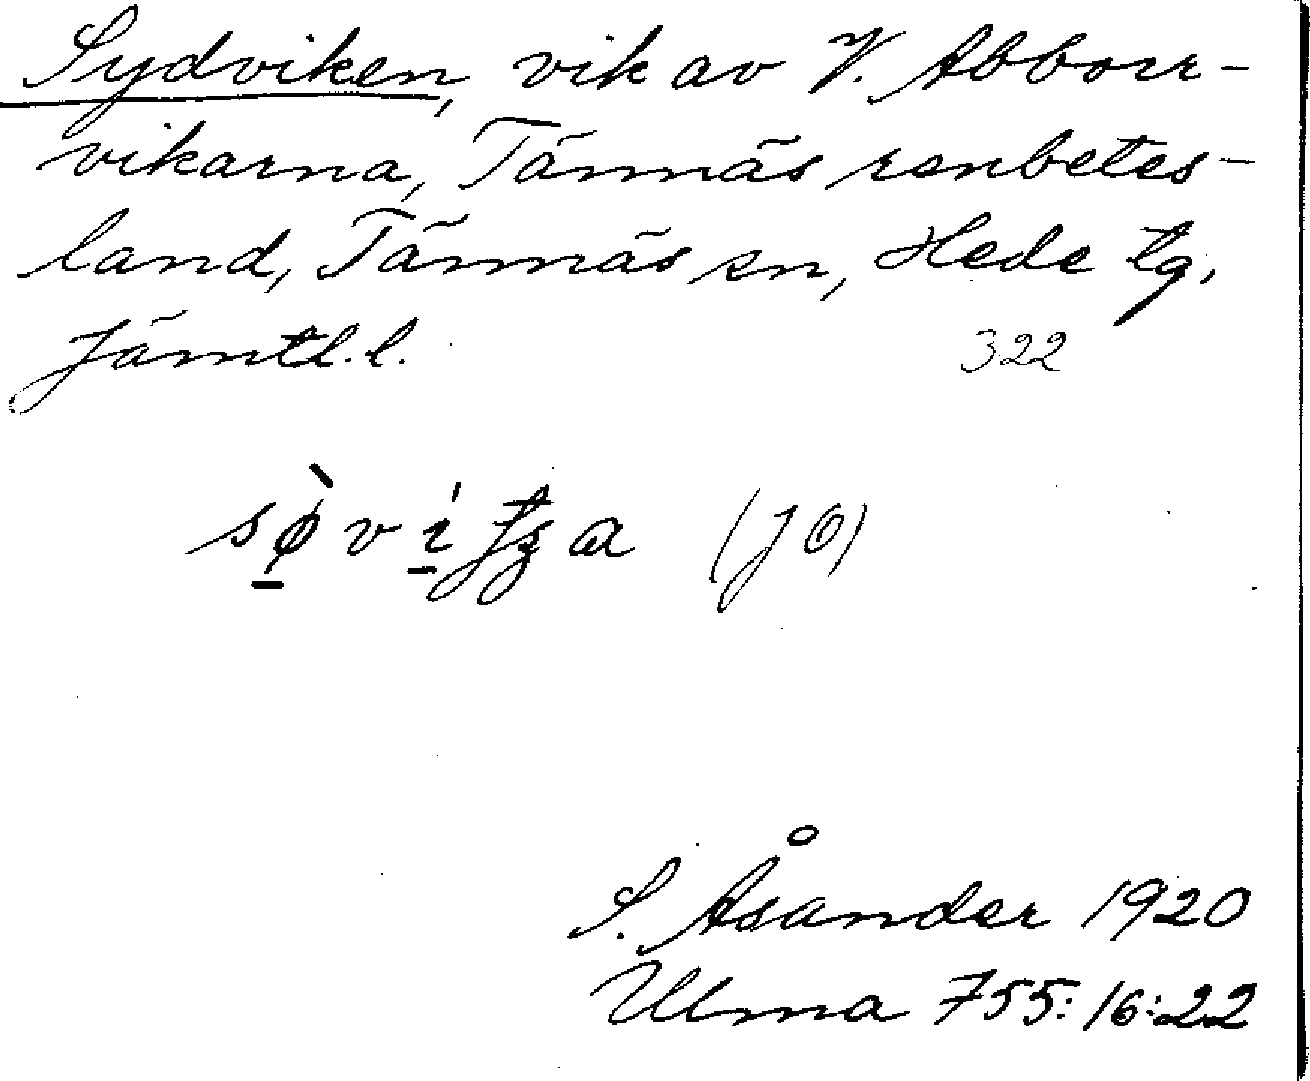 Sydviken, vik av V. Abborr-
vikarna, Tännäs renbetes-
land, Tännäs sn, Hede tg,
Jämtl.l. 322
(JO)
S. Åsander 1920
Ulma 755:16:22